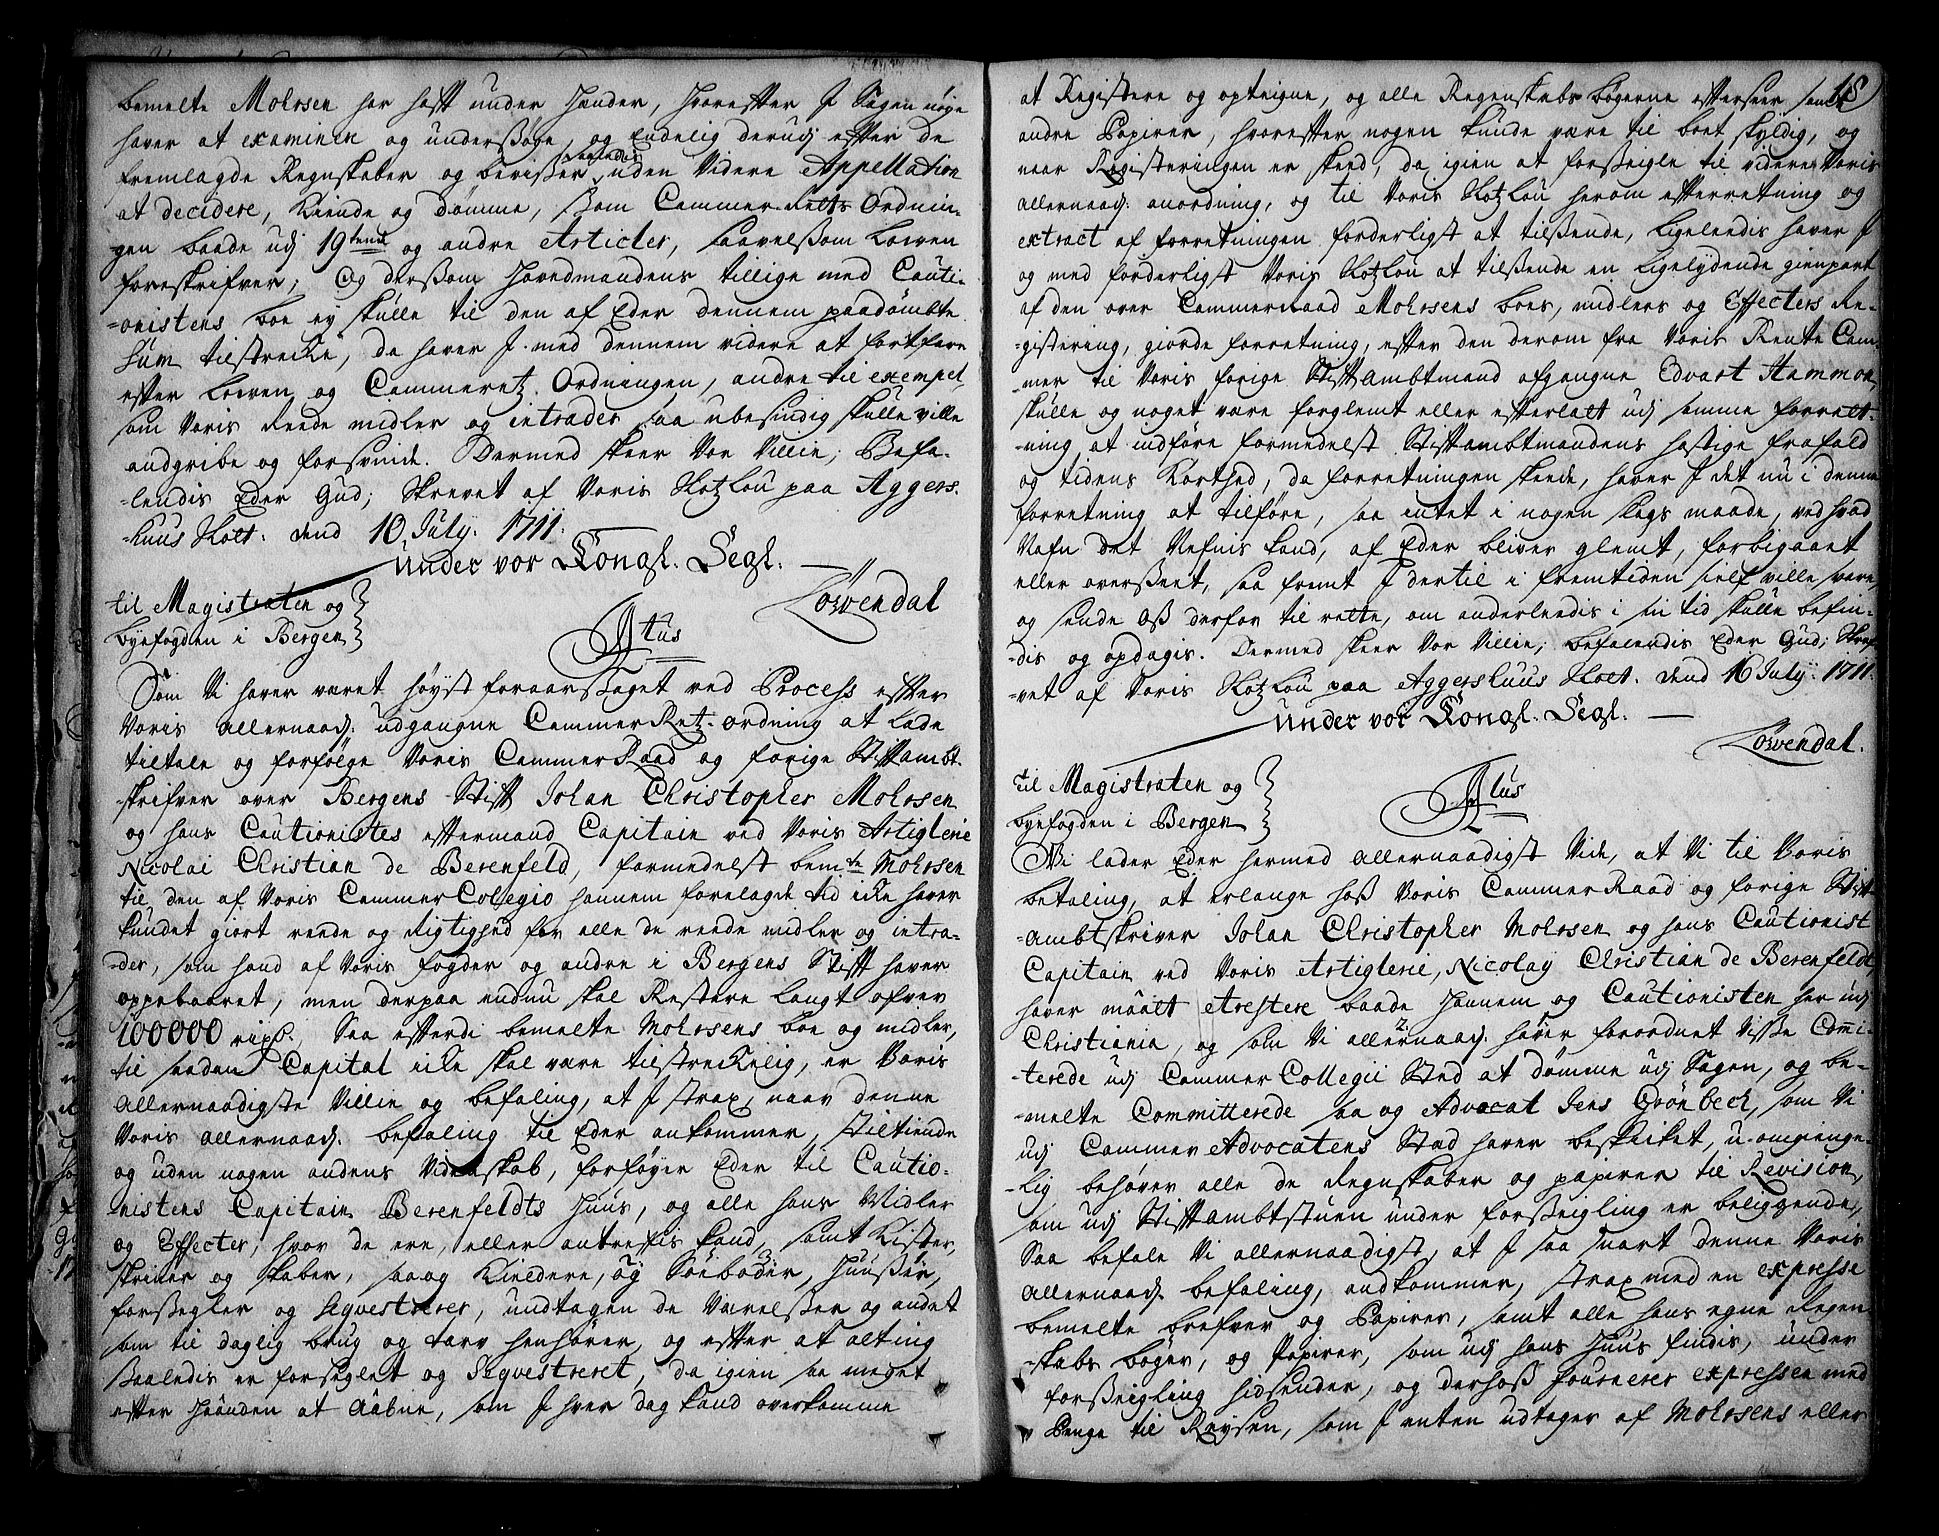 bemelte Mohrsen har hafft under Hænder, hvorefter I Sagen nöye
haver at examinere og undersöge, og Endelig derudj efter de
fremlagde Regnskaber og bevisser saaledis uden Videre Appellation
at decidere, Kiende og dömme, som Cammer Retts Ordnin-
gen baade udj 19tende og andre Articler, saavelsom Loven
foreskrifver; Og dersom Hovedmandens tillige med Cauti-
-onistens boe ey skulle til den af Eder dennem paadömbte
Sum tilstrecke, da haver I med dennem videre at fortfare
efter Loven og Cammeretz Ordningen, andre til exempel,
som Voris Reede midler og intrader saa ubesindig skulle ville
andgribe og forsvinde. Dermed skeer Vor Villie; Befa-
-lendis Eder Gud; Skrevet af Voris Slotzlou paa Aggers-
-huus Slott. dend 10 July. 1711.
Under vor Kongl. Segl.
Löwendal
til Magistraten og
byefogden i Bergen
Atus
Som Vi haver været höyst foraarsaget ved Process efter
Voris allernaadj. udgangne CammerRetz-ordning at lade
tiltale og forfölge Voris CammerRaad og forige Stiftambt-
-skrifver over Bergens Stift Johan Christopher Mohrsen
og hans Cautionistes eftermand Capitain ved Voris Artiglerie
Nicolai Christian de Berenfeld, formedelst bem.te Mohrsen
til den af Voris CammerCollegio hannem forelagde tid icke haver
kundet giort reede og Rigtighed for alle de reede midler og intra-
-der, som hand af Voris fogder og andre i Bergens Stift haver
oppebaaret, men derpaa endnu skal Restere langt ofver
100000 rixd. Saa efterdi bemelte Mohrsens boe og midler,
til saadan Capital icke skal være tilstreckelig, er Voris
allernaadigste Villie og befaling, at I strax, naar denne
Voris allernaadj. befaling til Eder ankommer, stiltiende
og uden nogen andens Videnskab, forföyer Eder til Cautio-
nistens Capitain Berenfeldts Huus, og alle hans Midler
og Effecter, hvor de ere, eller antreffis kand, samt Kister,
skriner og skaber, saa og Kieldere, og Söeboder, Huusser,
forsegler og seqvestrerer, undtagen de Værelsser og andet
som til daglig brug og tarv henhörer, og efter at alting
saaledis er forseglet og Seqvestreret, da igien saa meget
efter Haanden at Aabne, som I hver dag kand overkomme
18
at Registere og opteigne, og alle Regenskabs bögerne efterseer samt
andre Papirer, hvorefter nogen kunde være til boet skyldig, og
naar Registeringen er skeed, da igien at forseigle til videre Voris
allernaadj. anordning, og til Voris Slotzlou herom efterretning og
extract af forretningen forderligst at tilsende, Ligeleedis haver I
og med forderligst Voris Slotzlou at tilsende en ligelydende gienpart
af den over Cammerraad Mohrsens boes, midlers og Effecters Re-
-gistering, giorde forretning, efter den derom fra Voris Rente Cam-
-mer til Voris forige Stiftambtmand afgangne Edvart Hammon,
skulle og noget være forglemt eller efterlatt udj samme forrett-
-ning at indföre formedelst Stiftambtmandens hastige frafald
og tidens Korthed, da forretningen skeede, haver I det nu i denne
forretning at tilföre, saa intet i nogen slags maade, ved hvad
Nafn det Nefnis kand, af Eder bliver glemt, forbigaaet
eller overseet, saa fremt I dertil i fremtiden self ville svare,
og sende Oss derfor til rette, om anderleedis i sin tid skulle befin-
-dis og opdagis. Dermed skeer Vor Villie; befalendis Eder Gud; Skre-
-vet af Voris Slotzlou paa Aggershuus Slott. dend 16 July. 1711.
Under vor Kongl. Segl.
Löwendal.
til Magistraten og
byefogden i Bergen
Atus
Vi lader Eder hermed allernaadigst Vide, at Vi til Voris
betaling, at erlange hoss Voris CammerRaad og forige Stift-
-ambtskriver Johan Christopher Mohrsen og hans Cautionist
Capitain ved Voris Artiglerie, Nicolaij Christian de Berenfeldt
haver maatt Arestere baade Hannem og Cautionisten her udj
Christiania, og som Vi allernaadj. haver forordnet Visse Comi-
-terede udj Cammer Collegii Sted at dömme udj Sagen, og be-
-melte Committerede saa og Advocat Jens Grönbeck, som Vi
udj Cammer Advocatens Stad haver beskicket, u-omgienge-
-lig behöver alle de Regnskaber og papirer til Revision,
som udj Stiftambtstuen under forseigling er beliggende,
Saa befale Vi allernaadigst, at I saa snart denne Voris
allernaadj. befaling, andkommer, strax med en expresse
bemelte brefver og Papirer, samt alle hans egne Regen
-skabs böger, og Papirer, som udj hans Huus findis, under
forseigling hidsender, og derhoss fournerer expressen med
Penge til Reysen, som I enten udtager af Mohrsens eller